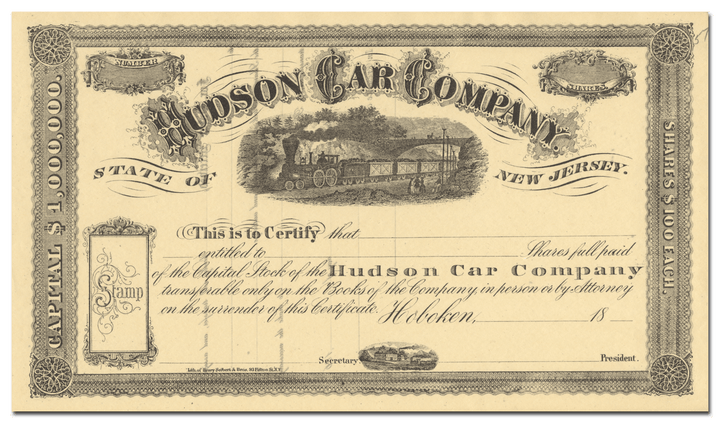 NUMBER
SHARES
HUDSON CAR COMPANY.
STATE OF NEW JERSEY.
CAPITAL $1,000,000.
SHARES $100 EACH.
This is to Certify that
entitled to Shares full paid
of the Capital Stock of the Hudson Car Company
transferable only on the Books of the Company in person or by Attorney
on the surrender of this Certificate. Hoboken, 18
Stamp
Secretary
President.
Lith. of Henry Seibert & Bros.